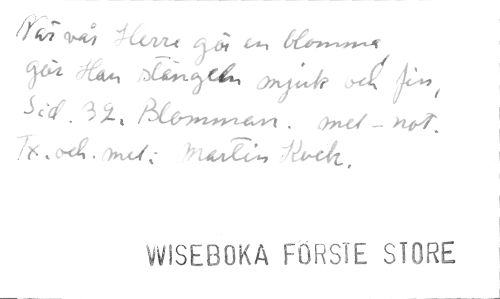 När vår Herre gör en blomma,
gör Han stängeln mjuk och fin,
Sid. 32. Blomman. mel-not.
Tx. och. mel: Martin Kock.
WISEBOKA FÖRSTE STORE